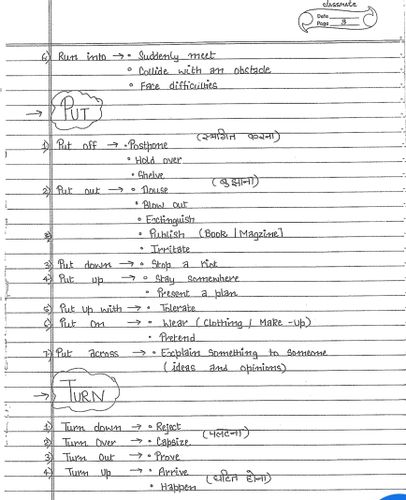 classmate
Date
Page 3
6) Run into → • Suddenly meet
• Collide with an obstacle
• Face difficulties
→ PUT
1) Put off → • Postpone (स्थगित करना)
• Hold over
• Shelve
2) Put out → • Douse (बुझाना)
• Blow out
• Extinguish
• Publish (Book / Magzine]
• Irritate
3) Put down → • Stop a Riot
4) Put up → • Stay somewhere
• Present a plan
5) Put up with → • Tolerate
6) Put on → • Wear (Clothing / Make-up)
• Pretend
7) Put across → • Explain something to someone
(ideas and opinions)
→ TURN
1) Turn down → • Reject
2) Turn Over → • Capsize (पलटना)
3) Turn Out → • Prove
4) Turn Up → • Arrive
• Happen (घटित होना)